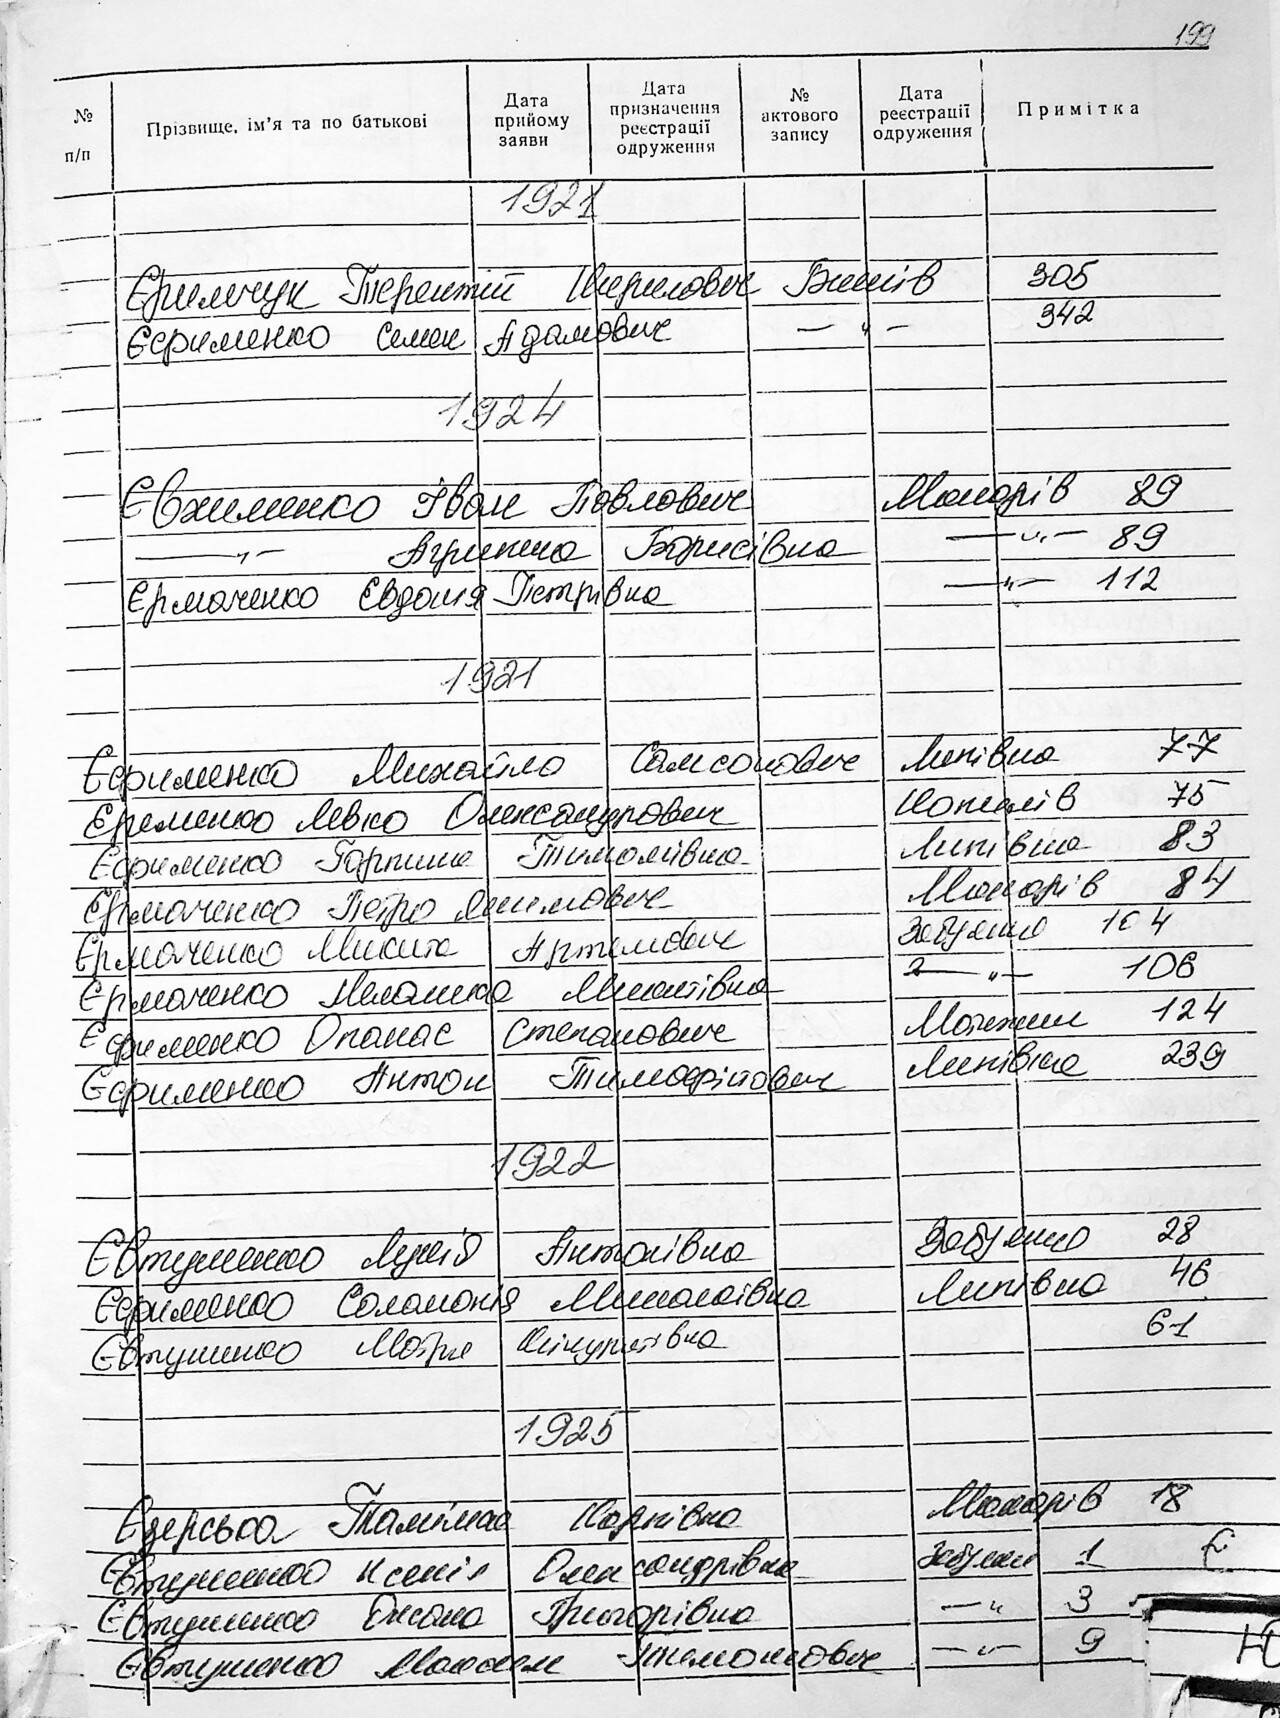 199
№ п/п
Прізвище, ім'я та по батькові
Дата прийому заяви
Дата призначення реєстрації одруження
№ актового запису
Дата реєстрації одруження
Примітка
1921
Єримчук Терентій Кирилович Бишів 305
Єфименко Семен Адамович — " — 342
1924
Євжименко Іван Павлович Макарів 89
— " — Агрипина Борисівна — " — 89
Єрмаченко Євдокія Петрівна — " — 112
1921
Єфименко Михайло Самсонович Липівка 77
Єременко Левко Олександрович 75
Єфименко Горпина Липівка 83
Єрмаченко Петро Макарів 84
Єрмаченко Микита Артемович Забуяння 104
Єрмаченко Меланка Микитівна — " — 106
Єфименко Опанас Степанович 124
Єфименко Антон Тимофійович Липівка 239
1922
Євтушенко Лукія Антонівна Забуяння 28
Єфименко Соломонія Миколаївна Липівка 46
Євтушенко Мотря 61
1925
Єзерська Карпівна Макарів 18
Євтушенко Ксенія Олександрівна Забуян 1 Є
Євтушенко Оксана Григорівна — " 3
Євтушенко Максим — " — 9
Ю